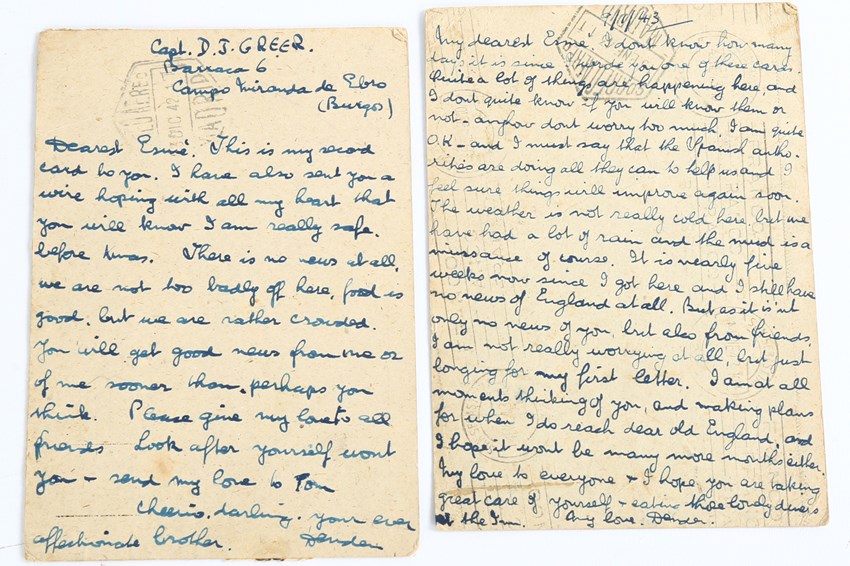 Capt. D.J. GREER.
Barraca 6
Campo Miranda de Ebro
(Burgos)
Dearest Esmé. This is my second
card to you. I have also sent you a
wire hoping with all my heart that
you will know I am really safe.
before Xmas. There is no news at all,
we are not too badly off here, food is
good. but we are rather crowded.
You will get good news from me or
of me sooner than, perhaps you
think. Please give my love to all
friends Look after yourself wont
you - send my love to Tom
Cheerio, darling. your ever
affectionate brother. Denden
My dearest Esmé. I dont know how many
days it is since I wrote you one of these cards.
Quite a lot of things are happening here, and
I dont quite know if you will know them or
not - anyhow dont worry too much, I am quite
O.K - and I must say that the Spanish autho-
rities are doing all they can to help us and I
feel sure things will improve again soon.
The weather is not really cold here but we
have had a lot of rain and the mud is a
nuissance of course. It is nearly five
weeks now since I got here and I still have
no news of England at all. But, as it is'nt
only no news of you, but also from friends,
I am not really worrying at all, but just
longing for my first letter. I am at all
moments thinking of you, and making plans
for when I do reach dear old England, and
I hope it wont be many more months either.
My love to everyone + I hope you are taking
great care of yourself + eating those lovely diners
at the Inn. My love. Denden.